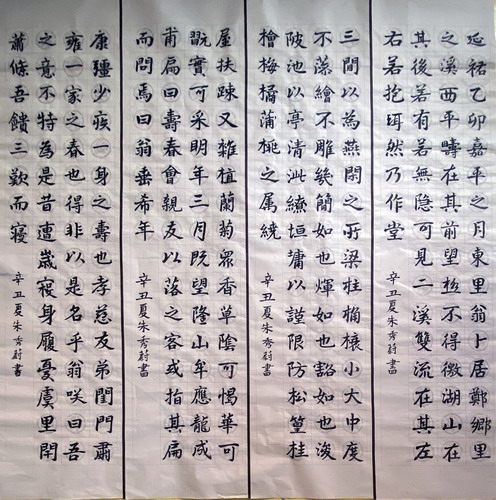 延祐乙卯嘉平之月東里翁卜居鄭鄉里
之溪西平疇在其前望極不得微湖山在
其後若有若無隐可見二溪雙流在其左
右若抱珥然乃作堂
辛丑夏朱秀蔚書
三間以為燕閑之所梁柱桷榱小大中度
不藻繪不雕幾簡如也煇如也豁如也浚
陂池以亭清泚繚垣墉以謹限防松篁桂
檜梅橘蒲桃之属繞
辛丑夏朱秀蔚書
屋扶踈又雜植蘭菊眾香草陰可愒華可
翫實可采明年三月既望隆山牟應龍成
甫扁曰壽春會親友以落之客或指其扁
而問焉曰翁垂希年
辛丑夏朱秀蔚書
康彊少疾一身之壽也孝慈友弟閨門肅
雍一家之春也得非以是名乎翁咲曰吾
之意不特為是昔遭嵗寖身履憂虞里閈
蕭條吾饋三歎而寝
辛丑夏朱秀蔚書